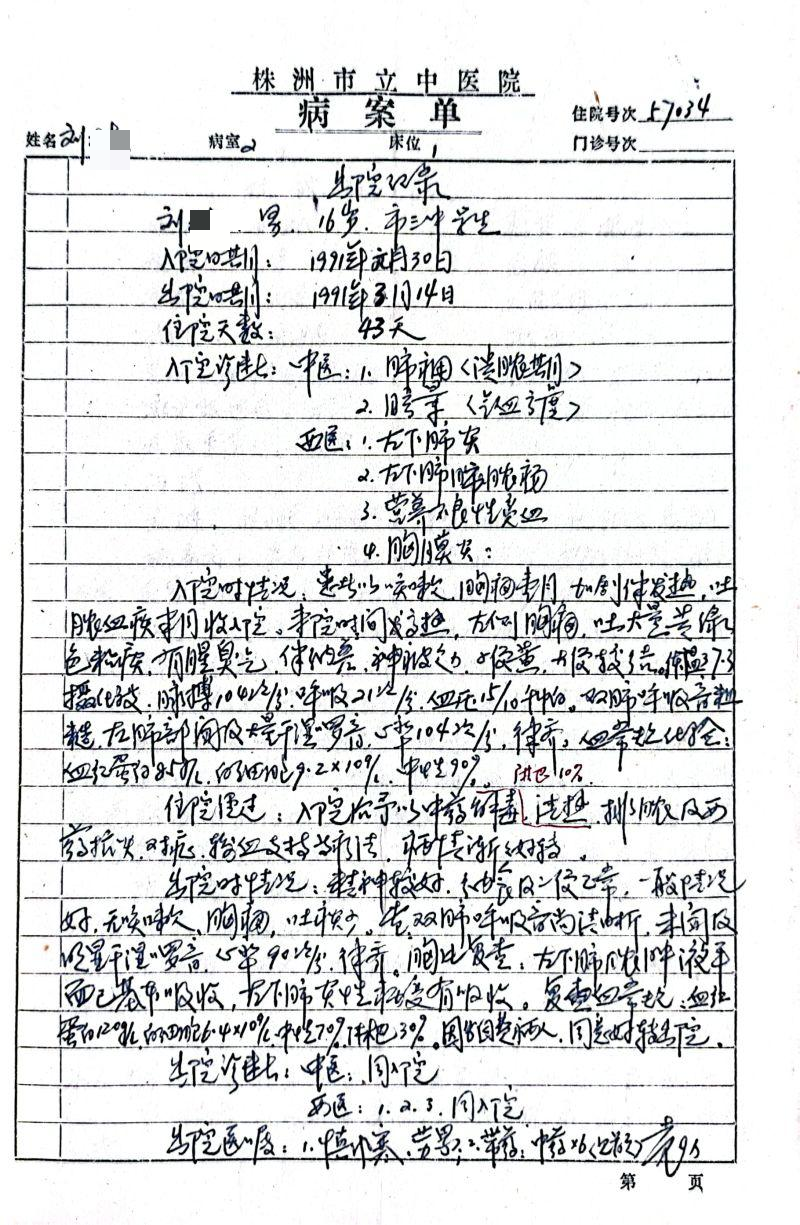 株洲市立中医院
病案单
住院号次 57034
姓名 刘 病室 2 床位 1 门诊号次
出院记录
刘 男 16岁 市三中学生
入院日期: 1991年 月30日
出院日期: 1991年3月14日
住院天数: 43天
入院诊断: 中医: 1. 肺痈<溃脓期>
2. 虚劳
西医: 1. 左下肺炎
2. 左下肺脓肿
3. 营养不良性贫血
4. 胸膜炎:
入院时情况: 患者以咳嗽、胸痛 月, 加剧伴发热, 吐
脓血痰 月收入院。来院时间发高热, 左侧胸痛, 吐大量黄绿
色粘痰, 有腥臭气, 伴纳差, 神疲乏力, 小便黄, 大便 结。体温37.3
摄氏度, 脉搏104次/分, 呼吸21次/分, 血压15/10千帕。双肺呼吸音粗
糙, 左肺部闻及大量干湿啰音, 心率104次/分, 律齐。血常规化验:
血红蛋白85g/L, 白细胞9.2×10⁹/L, 中性90%, 淋巴10%.
住院经过: 入院后予以中药解毒, 清热, 排脓及西
药抗炎, 对症, 输血支持等疗法, 病情渐好转。
出院时情况: 精神较好, 纳食及二便正常, 一般情况
好, 无咳嗽, 胸痛, 吐痰少。查双肺呼吸音尚清晰, 未闻及
明显干湿啰音, 心率90次/分, 律齐。胸片复查: 左下肺脓肿液平
面已基本吸收, 左下肺炎性病变有吸收。复查血常规: 血红
蛋白120g/L, 白细胞6.4×10⁹/L, 中性70%, 淋巴30%。 同意好转出院。
出院诊断: 中医: 同入院
西医: 1.2.3. 同入院
出院医嘱: 1. 慎外寒, 劳累; 2. 带药: 中药×6
第 页